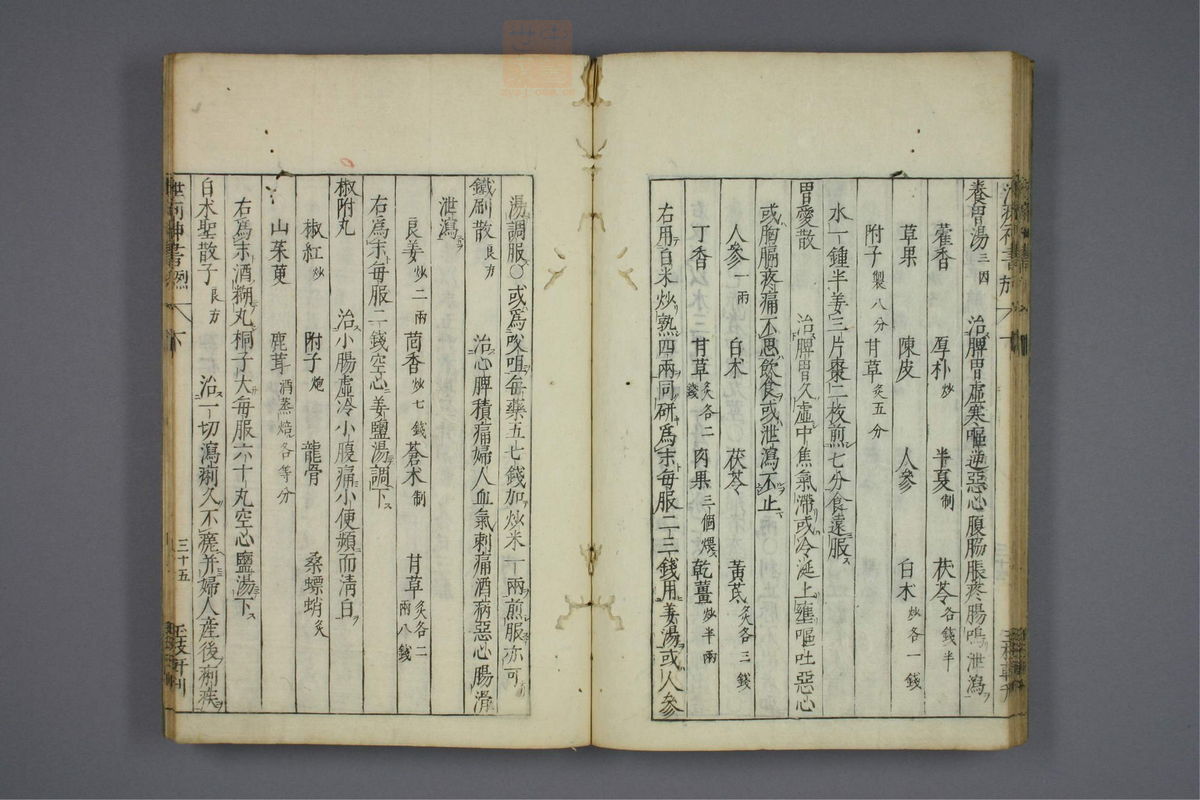 養胃湯 三因 治脾胃虛寒嘔逆惡心腹脇脹疼腸鳴泄瀉
藿香 厚朴炒 半夏制 茯苓各錢半
草果 陳皮 人參 白朮炒各一錢
附子製八分 甘草炙五分
水一鍾半姜三片棗二枚煎七分食遠服
胃愛散 治脾胃久虛中焦氣滯或冷涎上壅嘔吐惡心
或胸膈疼痛不思飲食或泄瀉不止
人參一兩 白朮 茯苓 黃芪炙各三錢
丁香 甘草炙各二錢 肉果三個煨 乾薑炒半兩
右用白米炒熟四兩同研為末每服二三錢用姜湯或人參
湯調服○或為㕮咀每藥五七錢加炒米一兩煎服亦可
鐵刷散 良方 治心脾積痛婦人血氣刺痛酒病惡心腸滑
泄瀉
良姜炒二兩 茴香炒七錢 蒼朮制 甘草炙各二兩八錢
右為末每服二錢空心姜鹽湯調下
椒附丸 治小腸虛冷小腹痛小便頻而清白
椒紅炒 附子炮 龍骨 桑螵蛸炙
山茱萸 鹿茸酒蒸焙各等分
右為末酒糊丸桐子大每服六十丸空心鹽湯下
白朮聖散子 良方 治一切瀉痢久不瘥并婦人產後痢疾
下
三十五